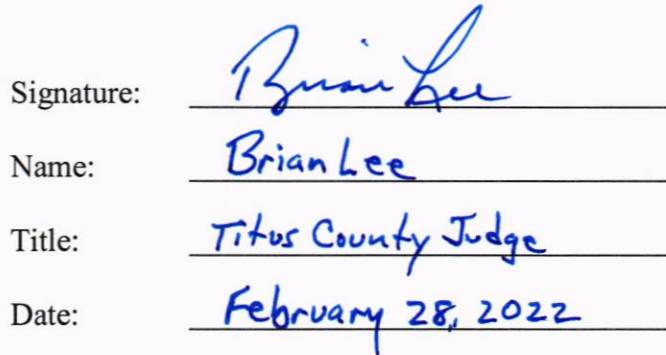 Signature: Brian Lee
Name: Brian Lee
Title: Titus County Judge
Date: February 28, 2022